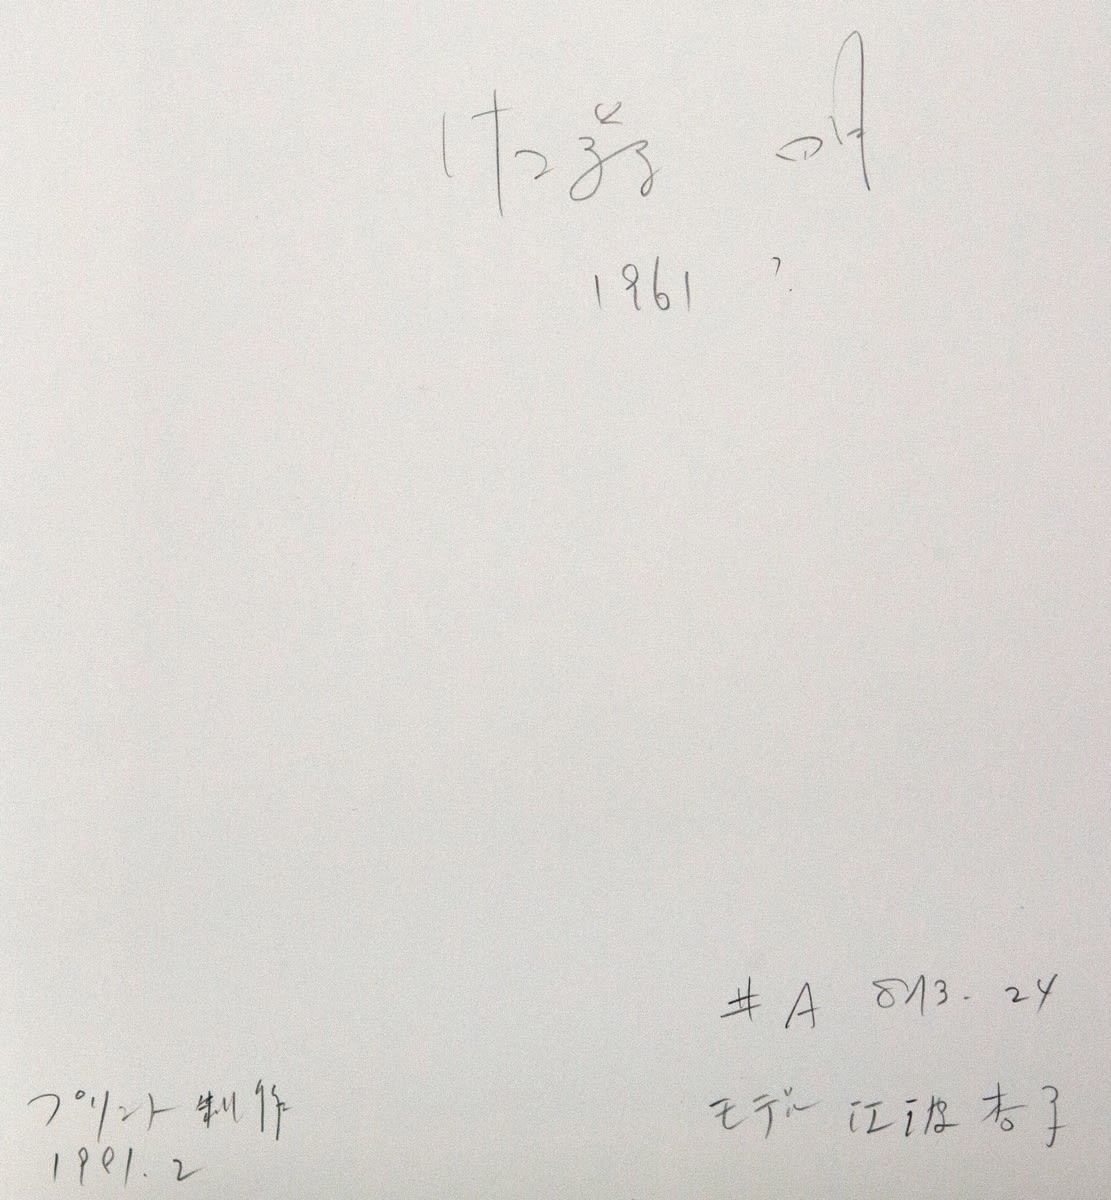 佐藤 明
1961 ?
#A 813.24
プリント制作 モデル 江波杏子
1991.2